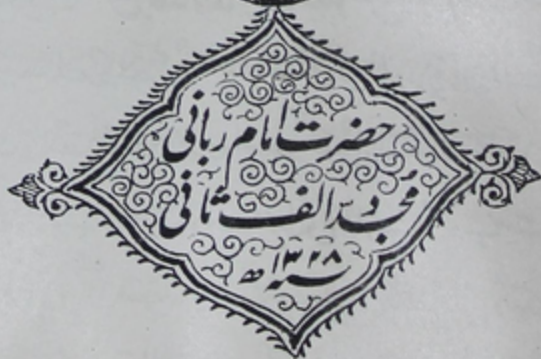 حضرت امام ربانی
مجدد الف ثانی
سنہ ۱۳۲۸ھ